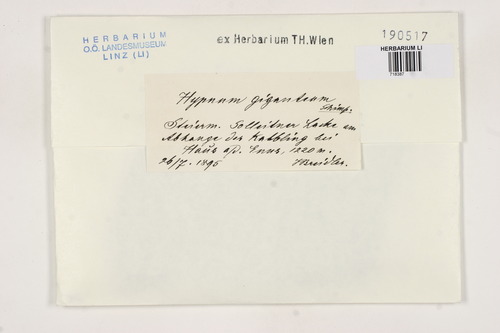 HERBARIUM
O.Ö. LANDESMUSEUM
LINZ (LI)
ex Herbarium TH.Wien
190517
HERBARIUM LI
Hypnum giganteum
Schimp.
Steierm. Lacke am
Abhange des bei
Haus a/d. Enns, 1220 m.
26/7. 1895 Breidler.